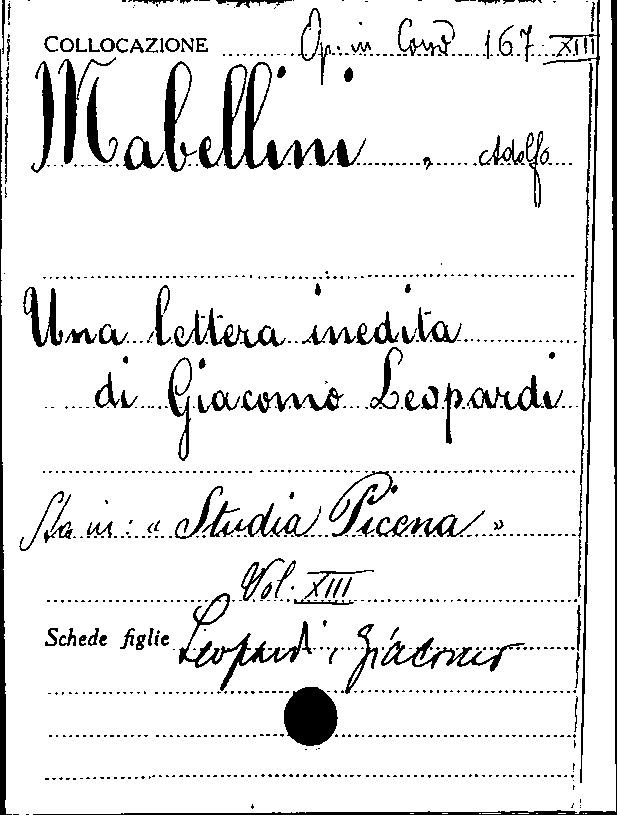 COLLOCAZIONE Op. in Cors 167 XIII
Mabellini, Adolfo
Una lettera inedita
di Giacomo Leopardi
Sta in: « Studia Picena »
Vol. XIII
Schede figlie Leopardi, Giacomo